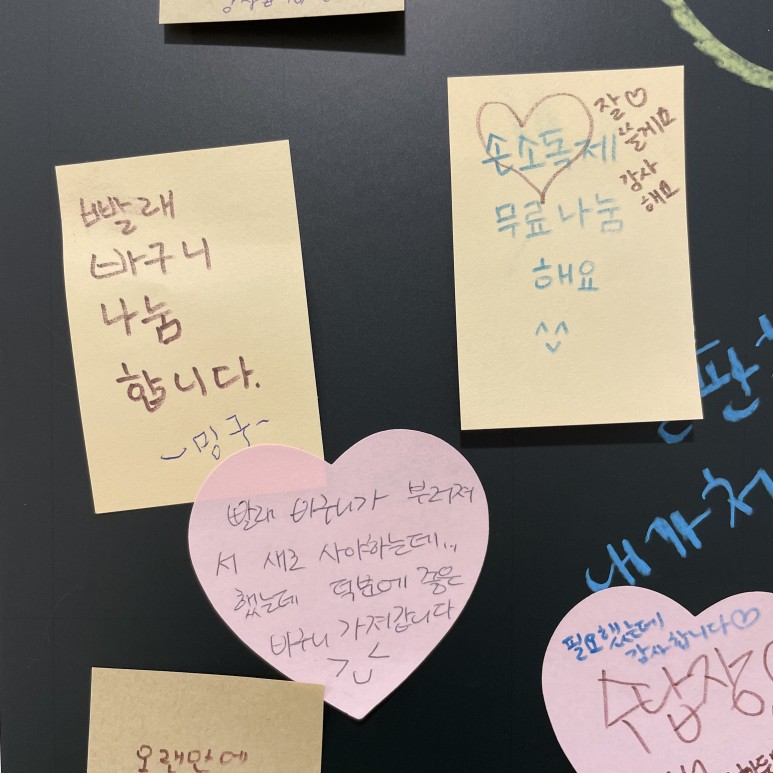 손소독제
무료나눔
해요
^^
잘♡
쓸게요
감사
해요
빨래
바구니
나눔
합니다.
~밍구~
빨래 바구니가 부러져
서 새로 사야하는데..
했는데 덕분에 좋은
바구니 가져갑니다
내가 처
필요했는데
감사합니다♡
수납장
오랜만에